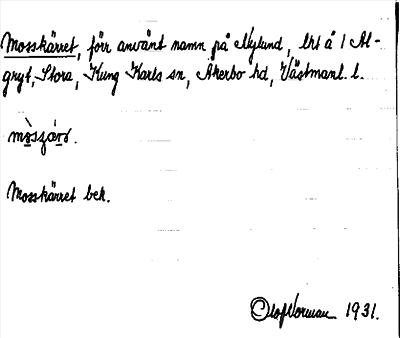 Mosskärret, förr använt namn på Nylund, lht å 1 Al-
gryt, Stora, Kung Karls sn, Akerbo hd, Västmanl. l.
Mosskärret bek.
Olof Vorman 1931.